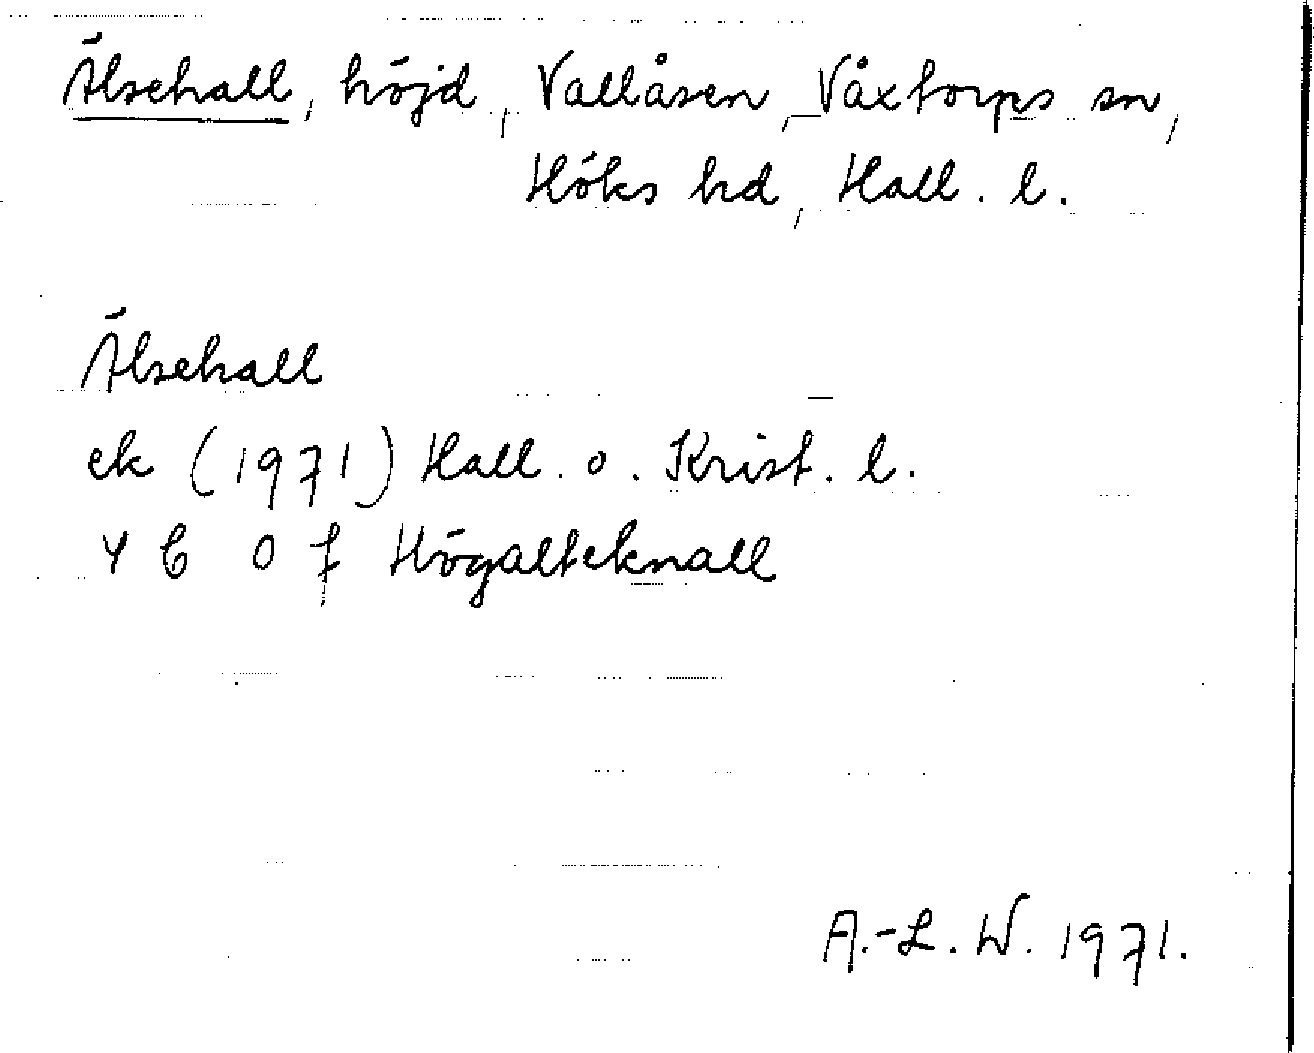 Älsehall, höjd, Vallåsen, Våxtorps sn,
Höks hd, Hall. l.
Älsehall
ek (1971) Hall. o. Krist. l.
4 C 0 f Högalteknall
A.-L. W. 1971.